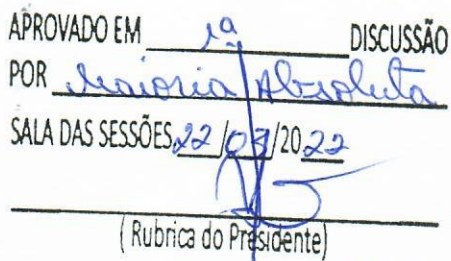 APROVADO EM 1ª DISCUSSÃO
POR Maioria Absoluta
SALA DAS SESSÕES, 22/03/2022
(Rubrica do Presidente)